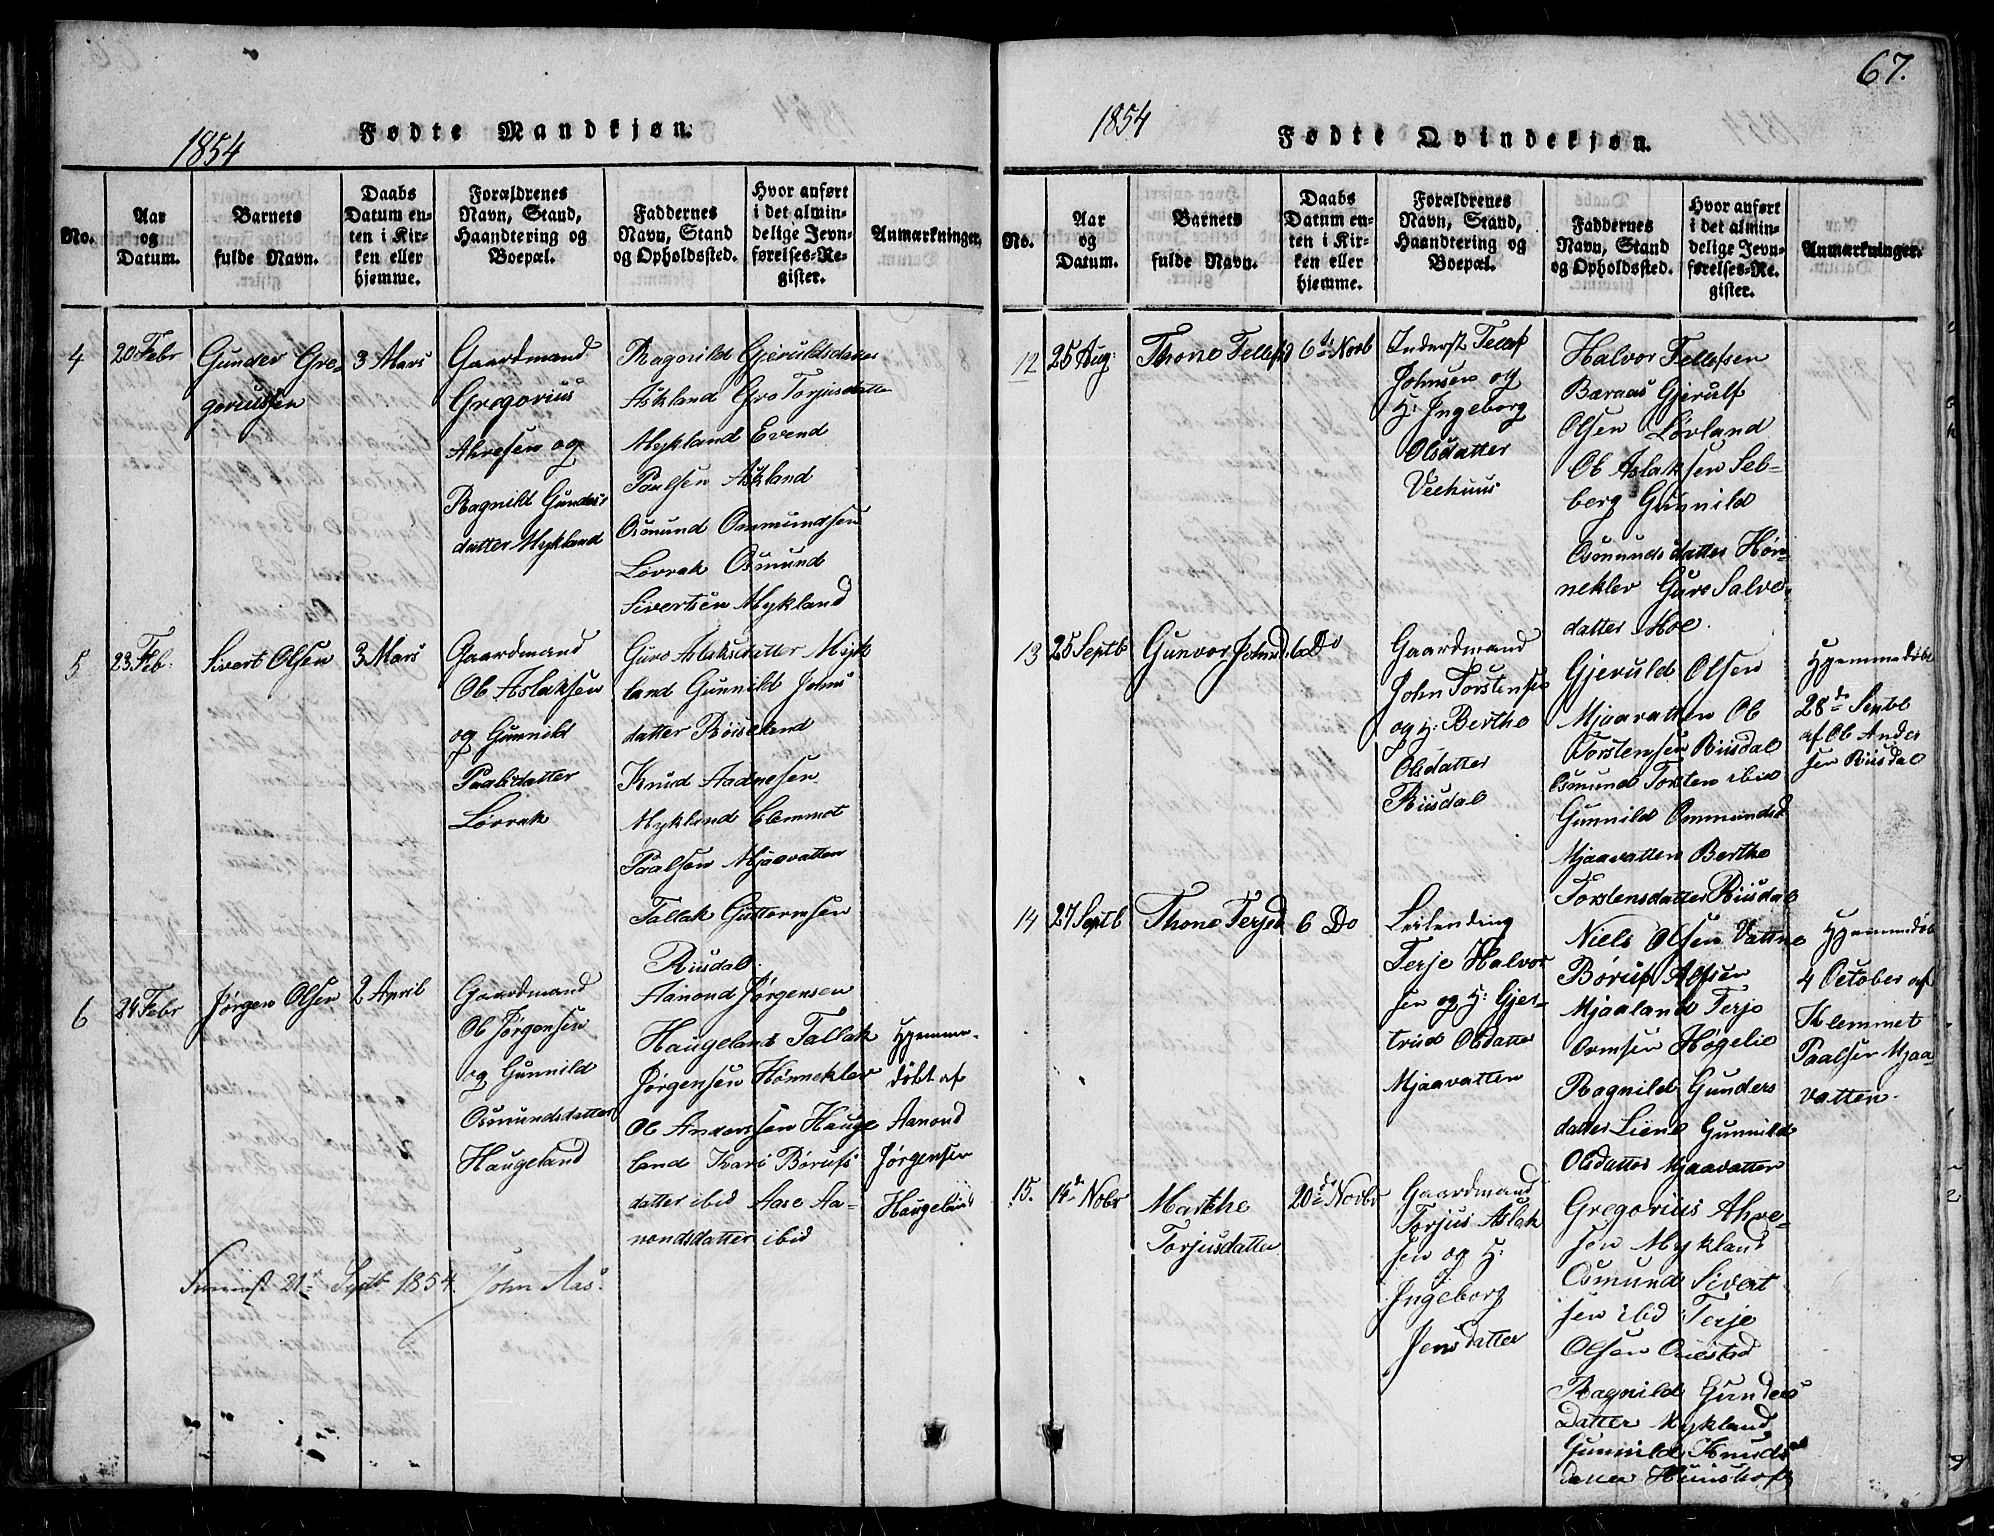 1854
Fødte Mandkjøn.
No.
Aar
og
Datum.
Barnets
fulde Navn.
Daabs
Datum en-
ten i Kir-
ken eller
hjemme.
Forældrenes
Navn, Stand,
Haandtering og
Boepæl.
Faddernes
Navn, Stand
og Opholdssted.
Hvor anført
i det almin-
delige Jevn-
førelses-Re-
gister.
Anmærkninger.
4
20 Febr
Gunder Gre-
goriussen
3 Mars
Gaardmand
Gregorius
Ahresen og
Ragnild Gunders
datter Mykland
Ragnild Gjeruldsdatter
Askland Gro Torjusdatter
Mykland Evend
Paulsen Askland
Osmund Ommundsen
Lovrak Osmund
Sivertsen Mykland
5
23 Feb.
Sivert Olsen
3 Mars
Gaardmand
Ob Aslaksen
og Gunnild
Paalsdatter
Lovrak
Guro Aslaksdatter Myk
land Gunnild Johns
datter Röiseland
Knud Aadnesen
Mykland Clemmet
Paalsen Mjaavatten
Tallak Guttormsen
Riisdal.
6
24 Febr
Jørgen Olsen
2 April
Gaardmand
Ob Jörgensen
og Gunnild
Osmundsdatter
Haugeland
Aanond Jørgensen
Haugeland Tallak
Jørgensen Hönnekler
Ob Andersen Hauge
land Kari Börufs
datter ibid Aase Aa-
nondsdatter ibid
Hjemme-
döbt af
Aanond
Jørgensen
Haugeland
21 Septb 1854. John Aas.
67.
1854
Fødte Qvindekjøn.
No.
Aar
og
Datum.
Barnets
fulde Navn.
Daabs
Datum en-
ten i Kir-
ken eller
hjemme.
Forældrenes
Navn, Stand,
Haandtering og
Boepæl.
Faddernes
Navn, Stand
og Opholdssted.
Hvor anført
i det almin-
delige Jevn-
førelses-Re-
gister.
Anmærkninger.
12
25 Aug:
Thone Tellefsd
6 de Novb
Inderst Tellef
Johnsen og
H: Ingeborg
Olsdatter
Veehuus
Halvor Tellefsen
Baraas Gjerulf
Olsen Lövland
Ob Aslaksen Sel-
berg Gunnild
Osmundsdatter Hön-
nekler Gure Salve-
datter Moe.
13
25 Septb
Gunvor Johnsd.
6 Do
Gaardmand
John Torstensen
og H: Berthe
Olsdatter
Riisdal
Gjeruld Olsen
Mjaavatten Ob
Torstensen Riisdal
Osmund Torsten ibid
Gunnild Ommundsd
Mjaavatten Berthe
Torstensdatter Riisdal
Hjemmedöbt
28 de Septb
af Ob Ander
sen Riisdal
14
27 Septb
Thone Terjesd
6 Do
Leilending
Terje Halvor
sen og H: Gjer-
trud Olsdatter
Mjaavatten
Niels Olsen Vattne
Börufs Alfsen
Mjaaland Terje
Ormsen Högelie
Ragnild Gunders
datter Liene Gunnild
Olsdatter Mjaavatten
Hjemmedöbt
4 October af
Klemmet
Paalsen Mjaa
vatten.
15.
14 de Nobr
Marthe
Torjusdatter
20 de Novbr
Gaardmand
Torjus Aslak
sen og H:
Ingeborg
Jensdatter
Gregorius Ahre-
sen Mykland
Osmund Sivert
sen ibid Terje
Olsen Ouestad
Ragnild Gunders
datter Mykland
Gunnild Knuds
datter